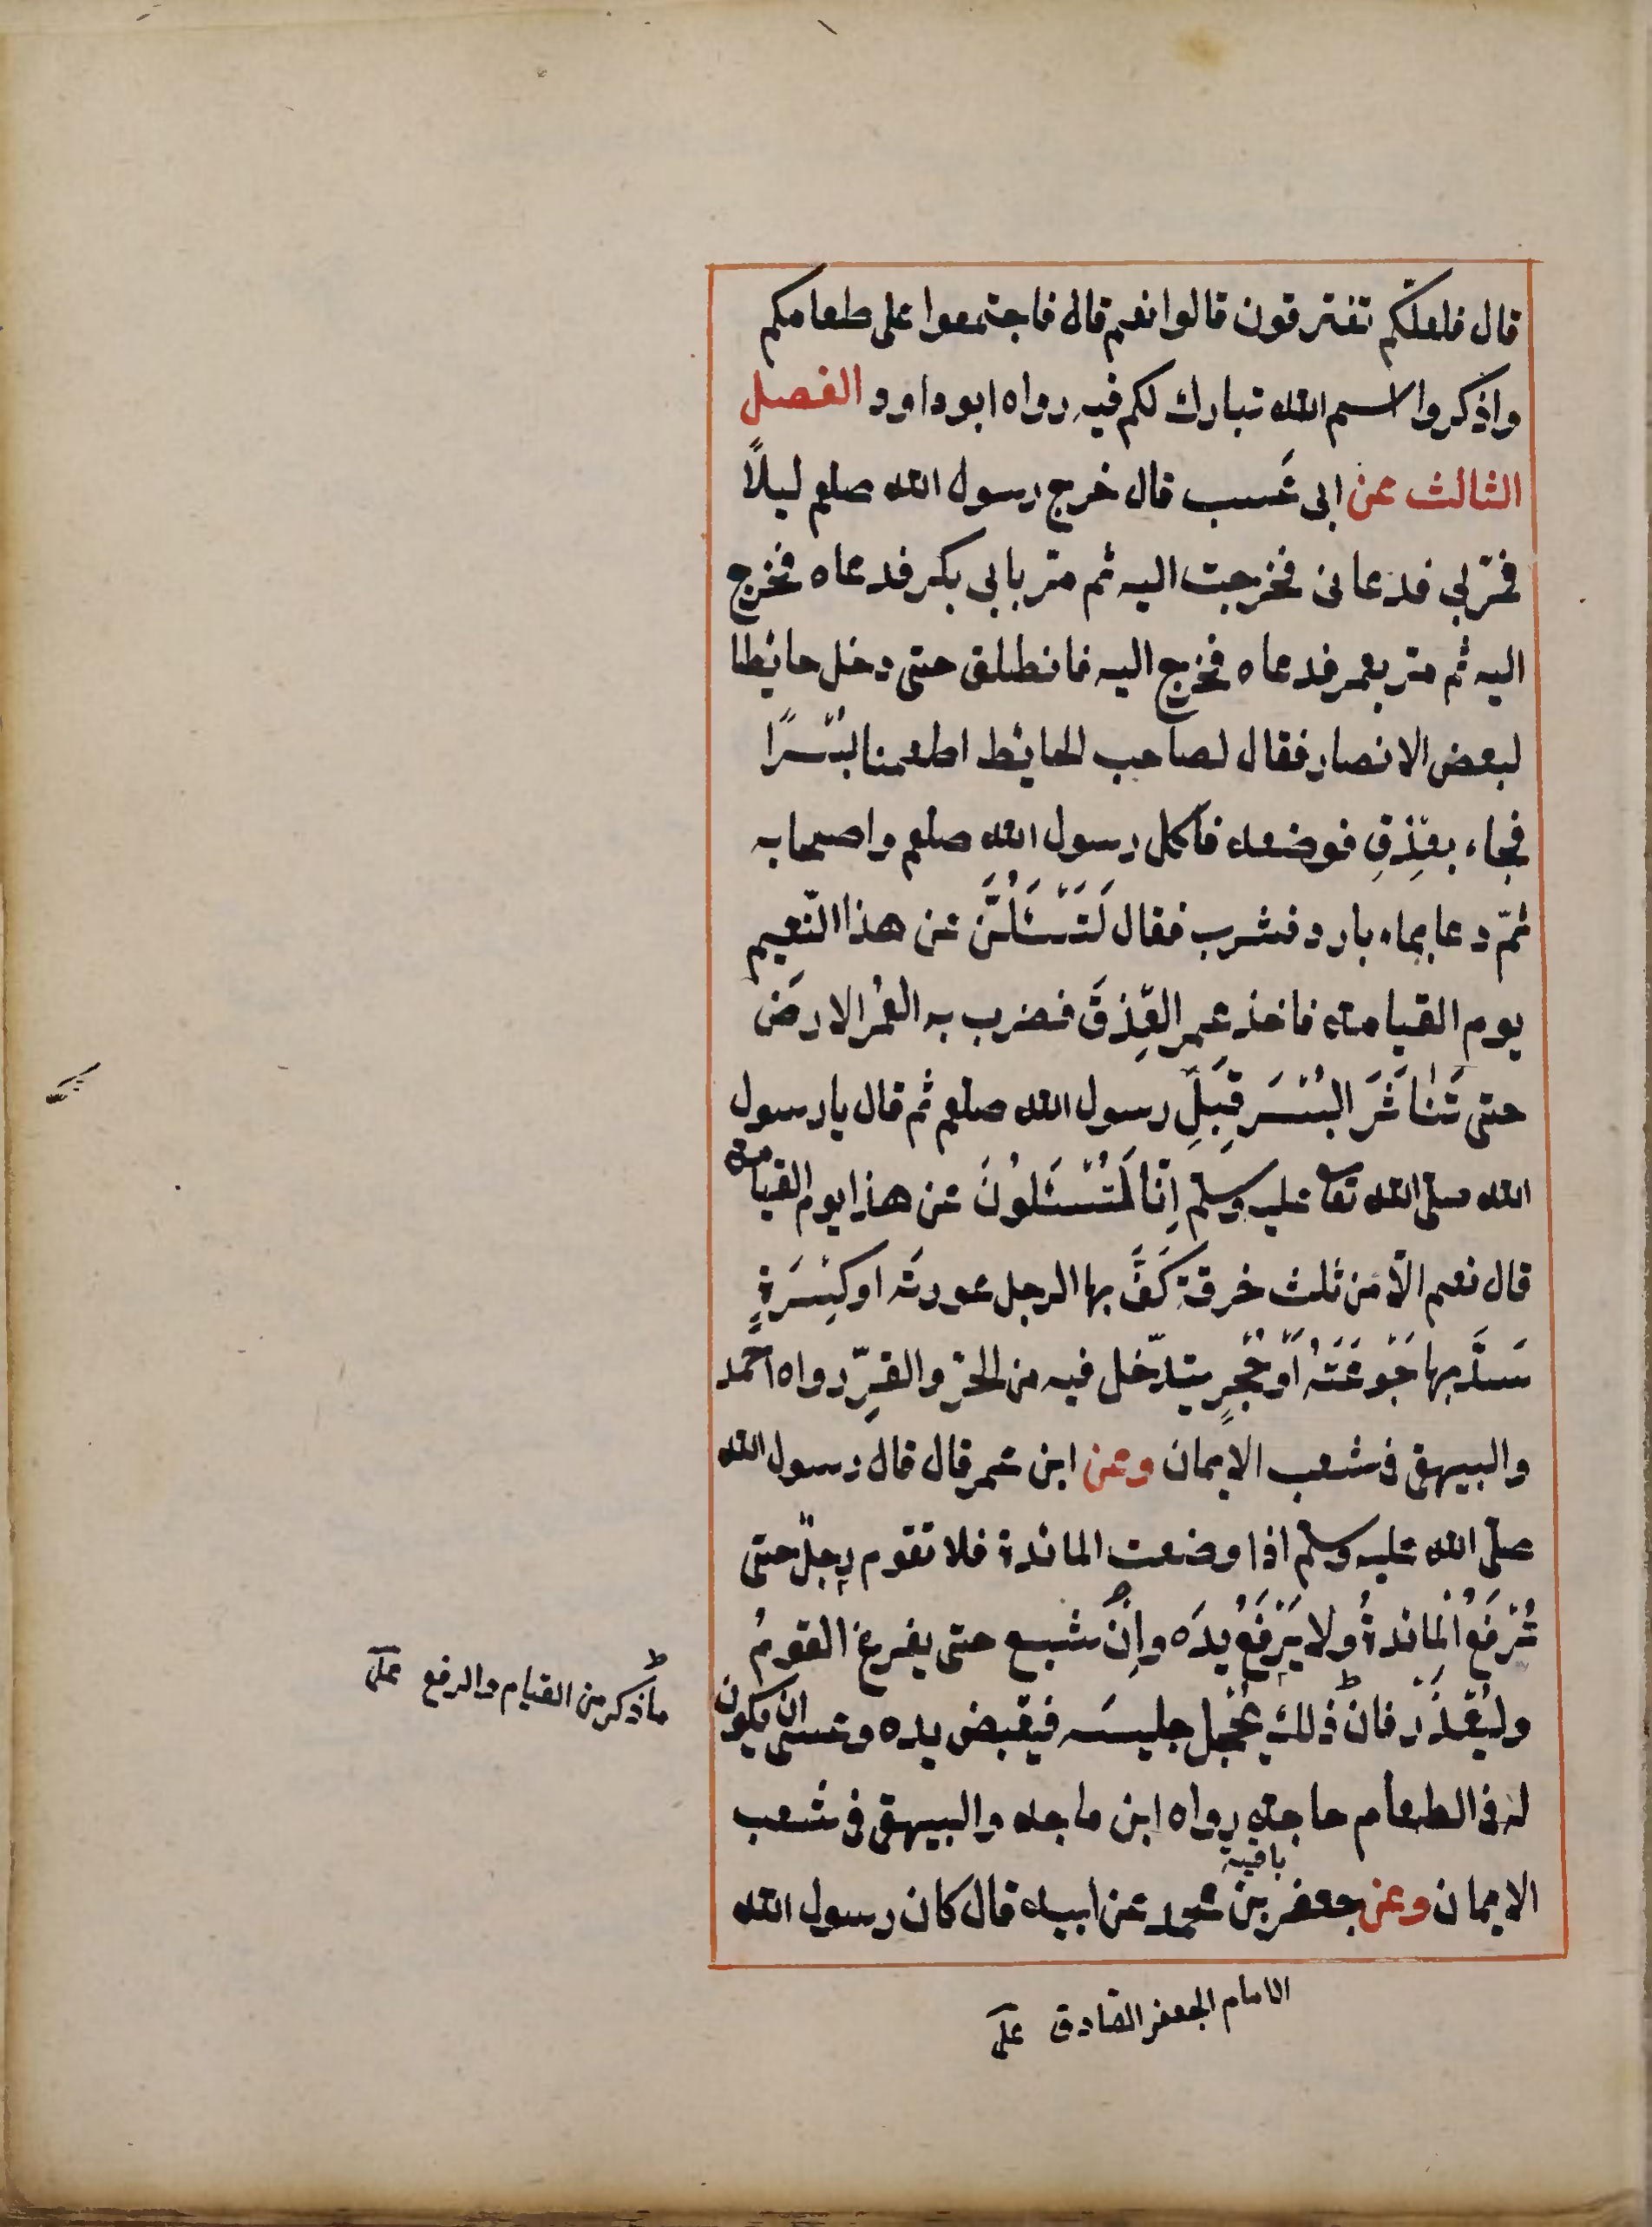 قال فلعلّكم تفترقون قالوا نعم قال فاجتمعوا على طعامكم
واذكروا اسم الله تبارك لكم فيه رواه ابو داود الفصل
الثالث عن ابى عَسب قال خرج رسول الله صلعم ليلًا
فمرّ بى فدعانى فخرجت اليه ثم مرّ بابى بكر فدعاه فخرج
اليه ثم مرّ بعمر فدعاه فخرج اليه فانطلق حتى دخل حائطا
لبعض الانصار فقال لصاحب الحائط اطعمنا بُسْرًا
فجاء بعِذقٍ فوضعه فاكل رسول الله صلعم واصحابه
ثمّ دعا بماء بارد فشرب فقال لَتَسْئَلُنَّ عن هذا النّعيم
يوم القيامة فاخذ عمر العِذقَ فضرب به العُمر الارضَ
حتى تَنَاثَرَ البُسْرَ قِبَلَ رسول الله صلعم ثم قال يا رسول
الله صلى الله تعا عليه وسلم اِنّا لَمُتْسْئَلُونَ عن هذا يوم القيامة
قال نعم الّا من ثلث خرقةٍ كَفَّ بها الرجل عورته او كِسْرَةٍ
سَدَّ بها جَوْعَتَهُ اَوْ حُجْرٍ يتدّخل فيه من الحرّ والقرِّ رواه احمد
والبيهقى فى شعب الايمان وعن ابن عمر قال قال رسول الله
صلى الله عليه وسلم اذا وضعت المائدة فلا تقوم رجلٌ حتى
تُرْفَعُ الْمائدةُ ولا يَرْفَعُ يدَه واِنْ شبع حتى يفرغ القومُ
وليُعْذَرْ فانّ ذلك يُخْجِل جليسَه فيقبض يده وعسى ان يكون
له فى الطعام حاجة رواه ابن ماجه والبيهقى فى شعب
باقية
الايمان وعن جعفر بن محمد عن ابيه قال كان رسول الله
ما ذكر من القيام والرفع على
الامام الجعفر الصادق على